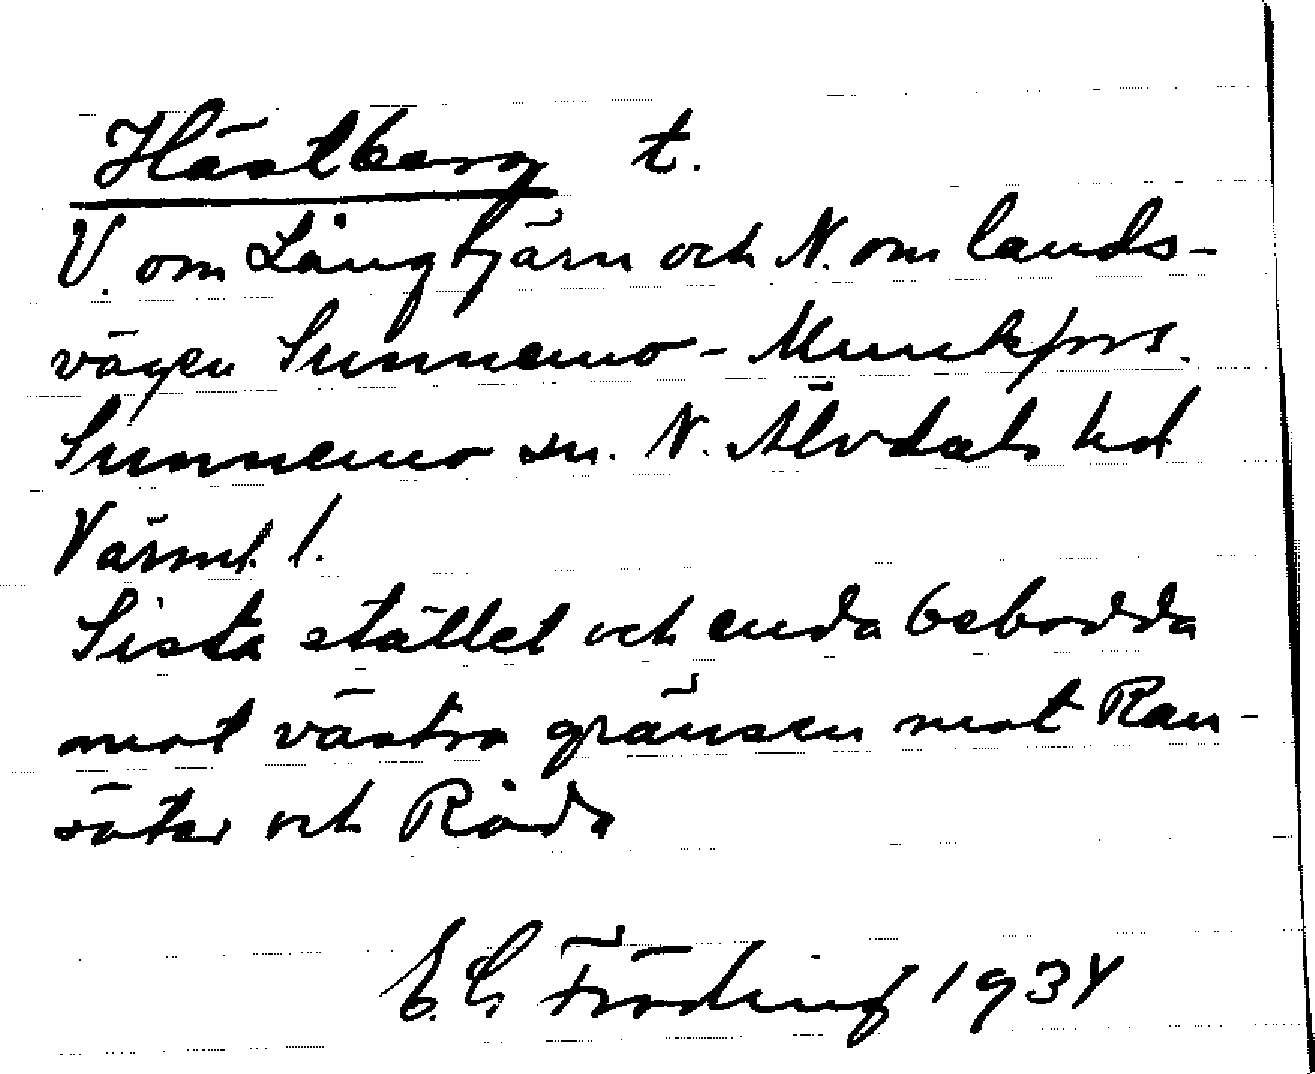 Hästberg t.
V. om Långtjärn och N. om lands-
vägen Sunnemo - Munkfors.
Sunnemo sn. N. Älvdals hd
Värml. l.
Sista stället och enda bebodda
mot västra gränsen mot Ran-
säter och Råda
E. G. Fröding 1934